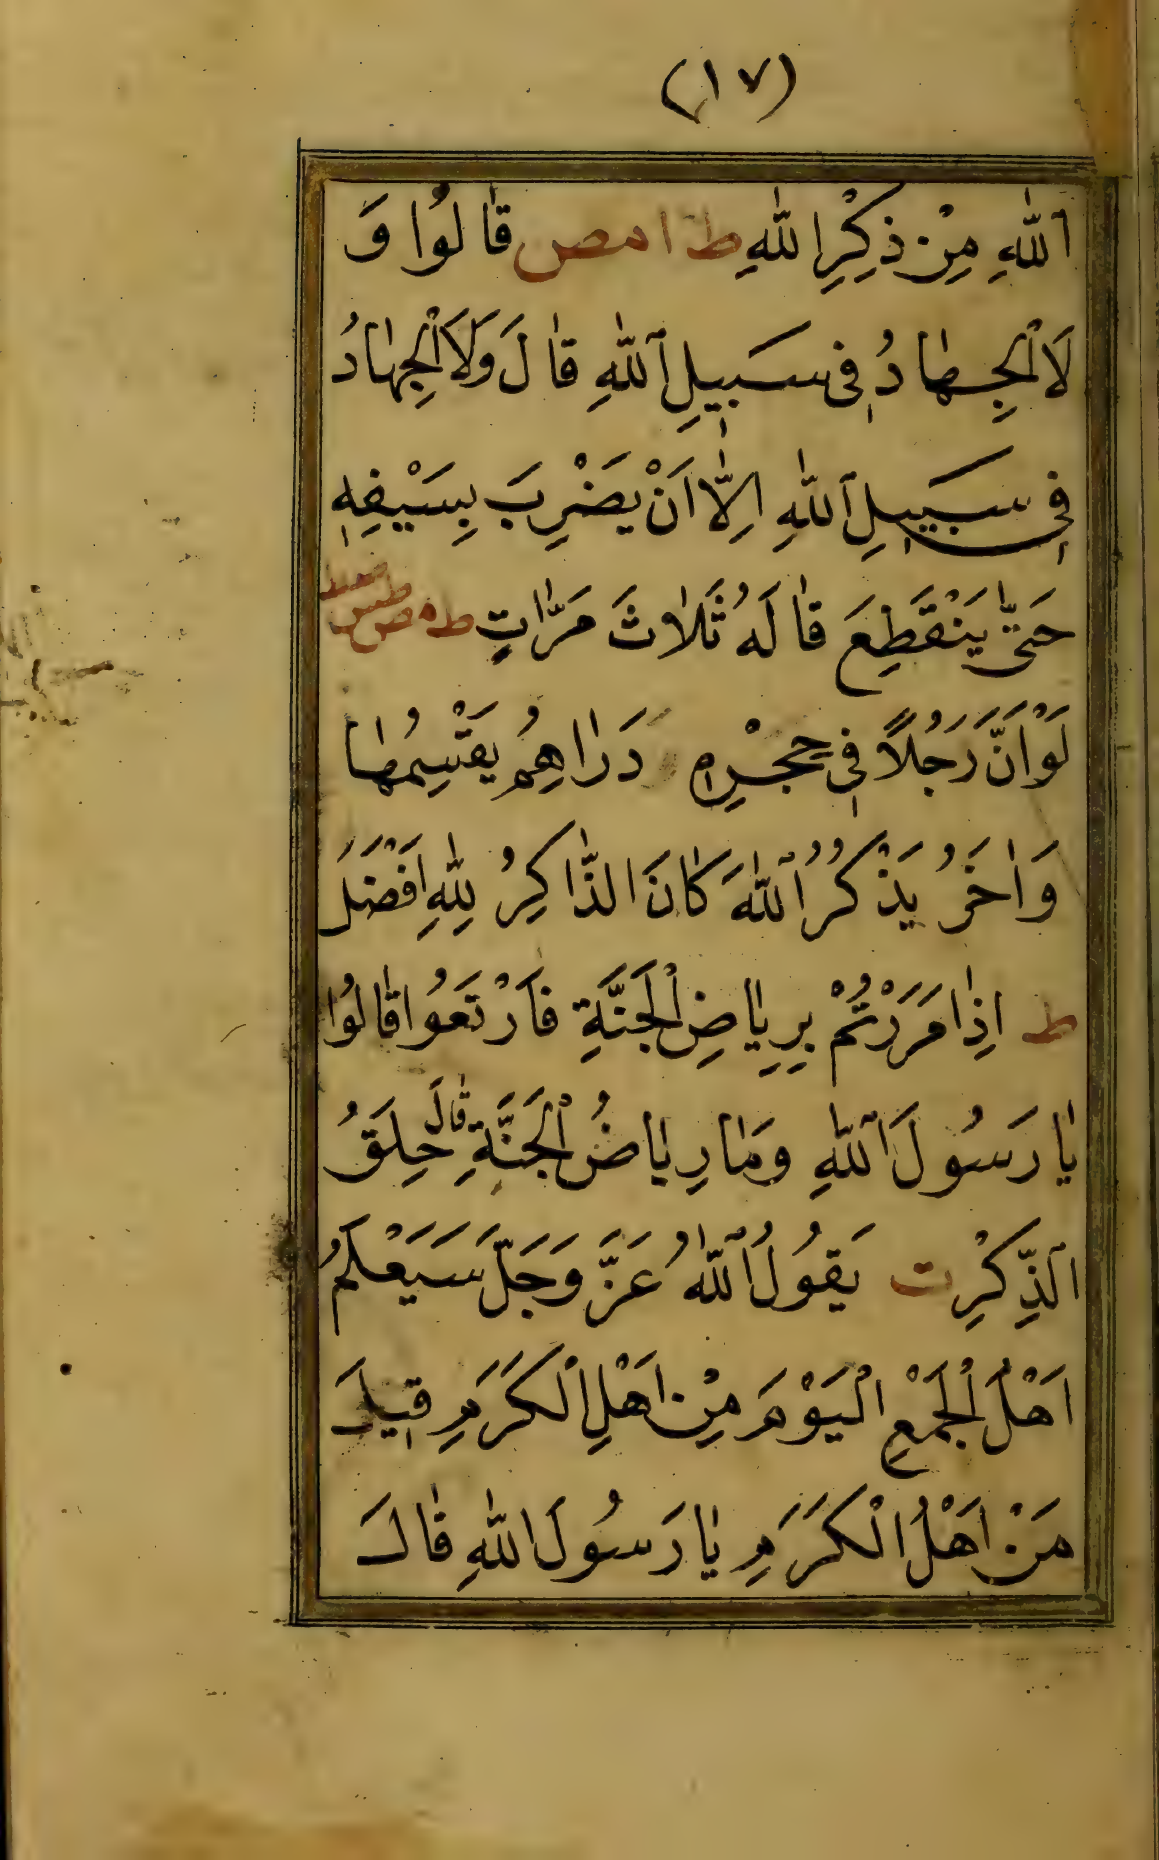 (١٧)
اَللّٰهِ مِنْ ذِكْرِ اللّٰهِ ط ا مص قَالُوا وَ
لَا الْجِهَادُ فِى سَبِيلِ اللّٰهِ قَالَ وَلَا الْجِهَادُ
فِى سَبِيلِ اللّٰهِ اِلَّا اَنْ يَضْرِبَ بِسَيْفِهِ
حَتّٰى يَنْقَطِعَ قَالَهُ ثَلَاثَ مَرَّاتٍ
لَوْ اَنَّ رَجُلًا فِى حِجْرِهِ دَرَاهِمُ يَقْسِمُهَا
وَاٰخَرُ يَذْكُرُ اللّٰهَ كَانَ الذَّاكِرُ لِلّٰهِ اَفْضَلَ
ط اِذَا مَرَرْتُمْ بِرِيَاضِ الْجَنَّةِ فَارْتَعُوا قَالُوا
يَا رَسُولَ اللّٰهِ وَمَا رِيَاضُ الْجَنَّةِ قَالَ حِلَقُ
الذِّكْرِ ت يَقُولُ اللّٰهُ عَزَّ وَجَلَّ سَيَعْلَمُ
اَهْلُ الْجَمْعِ الْيَوْمَ مِنْ اَهْلِ الْكَرَمِ قِيلَ
مَنْ اَهْلُ الْكَرَمِ يَا رَسُولَ اللّٰهِ قَالَ